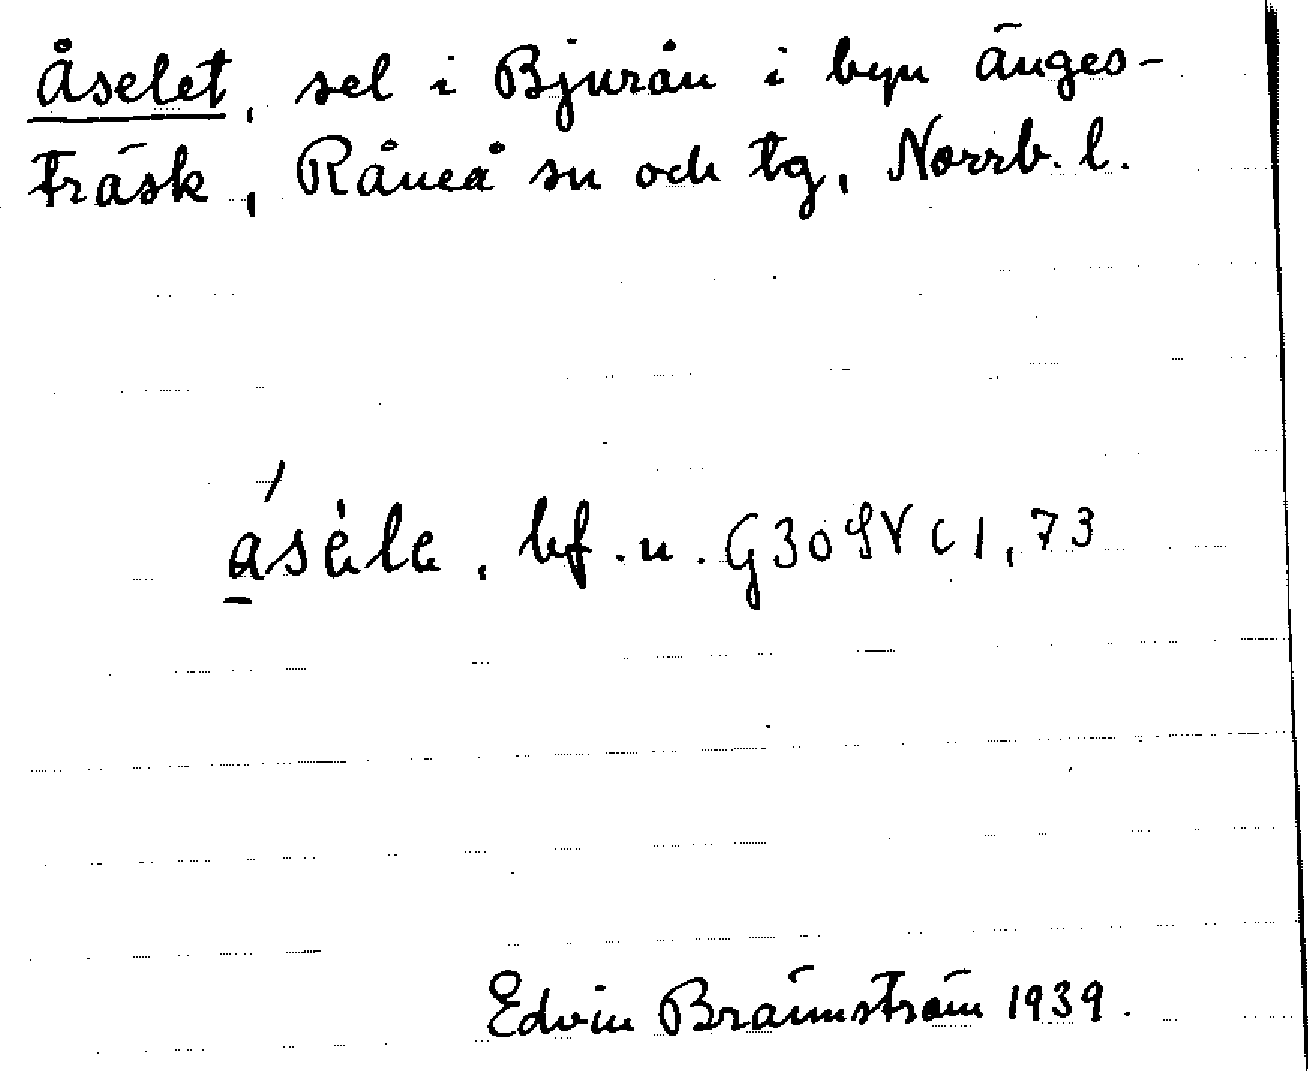 Åselet, sel i Bjurån i byn Änges-
träsk, Råneå sn och tg, Norrb. l.
bf. n. G30SV c1, 73
Edvin Brännström 1939.